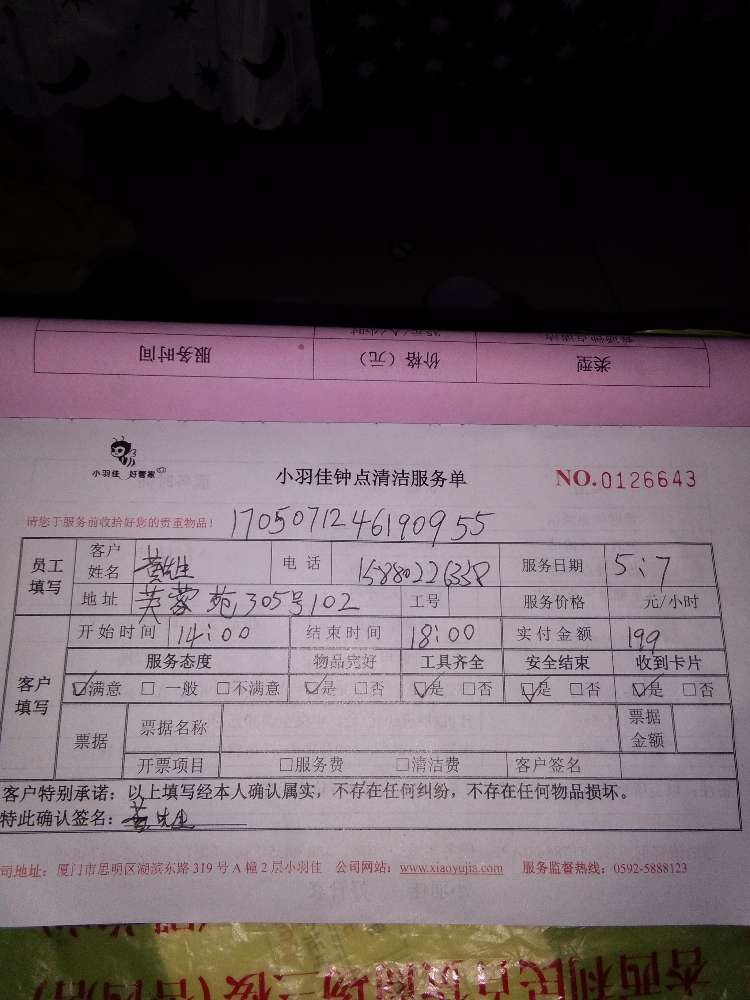 服务时间 价格（元） 类型
小羽佳 好管家
小羽佳钟点清洁服务单 NO.0126643
请您于服务前收拾好您的贵重物品！ 1705071246190955
员工填写 客户姓名 黄先生 电话 15880226358 服务日期 5:7
地址 芙蓉苑305号102 工号 服务价格 元/小时
客户填写 开始时间 14:00 结束时间 18:00 实付金额 199
服务态度 物品完好 工具齐全 安全结束 收到卡片
☑满意 □一般 □不满意 ☑是 □否 ☑是 □否 ☑是 □否 ☑是 □否
票据 票据名称 票据金额
开票项目 □服务费 □清洁费 客户签名
客户特别承诺：以上填写经本人确认属实，不存在任何纠纷，不存在任何物品损坏。
特此确认签名：黄先生
司地址：厦门市思明区湖滨东路 319 号 A 幢 2 层小羽佳 公司网站：www.xiaoyujia.com 服务监督热线：0592-5888123